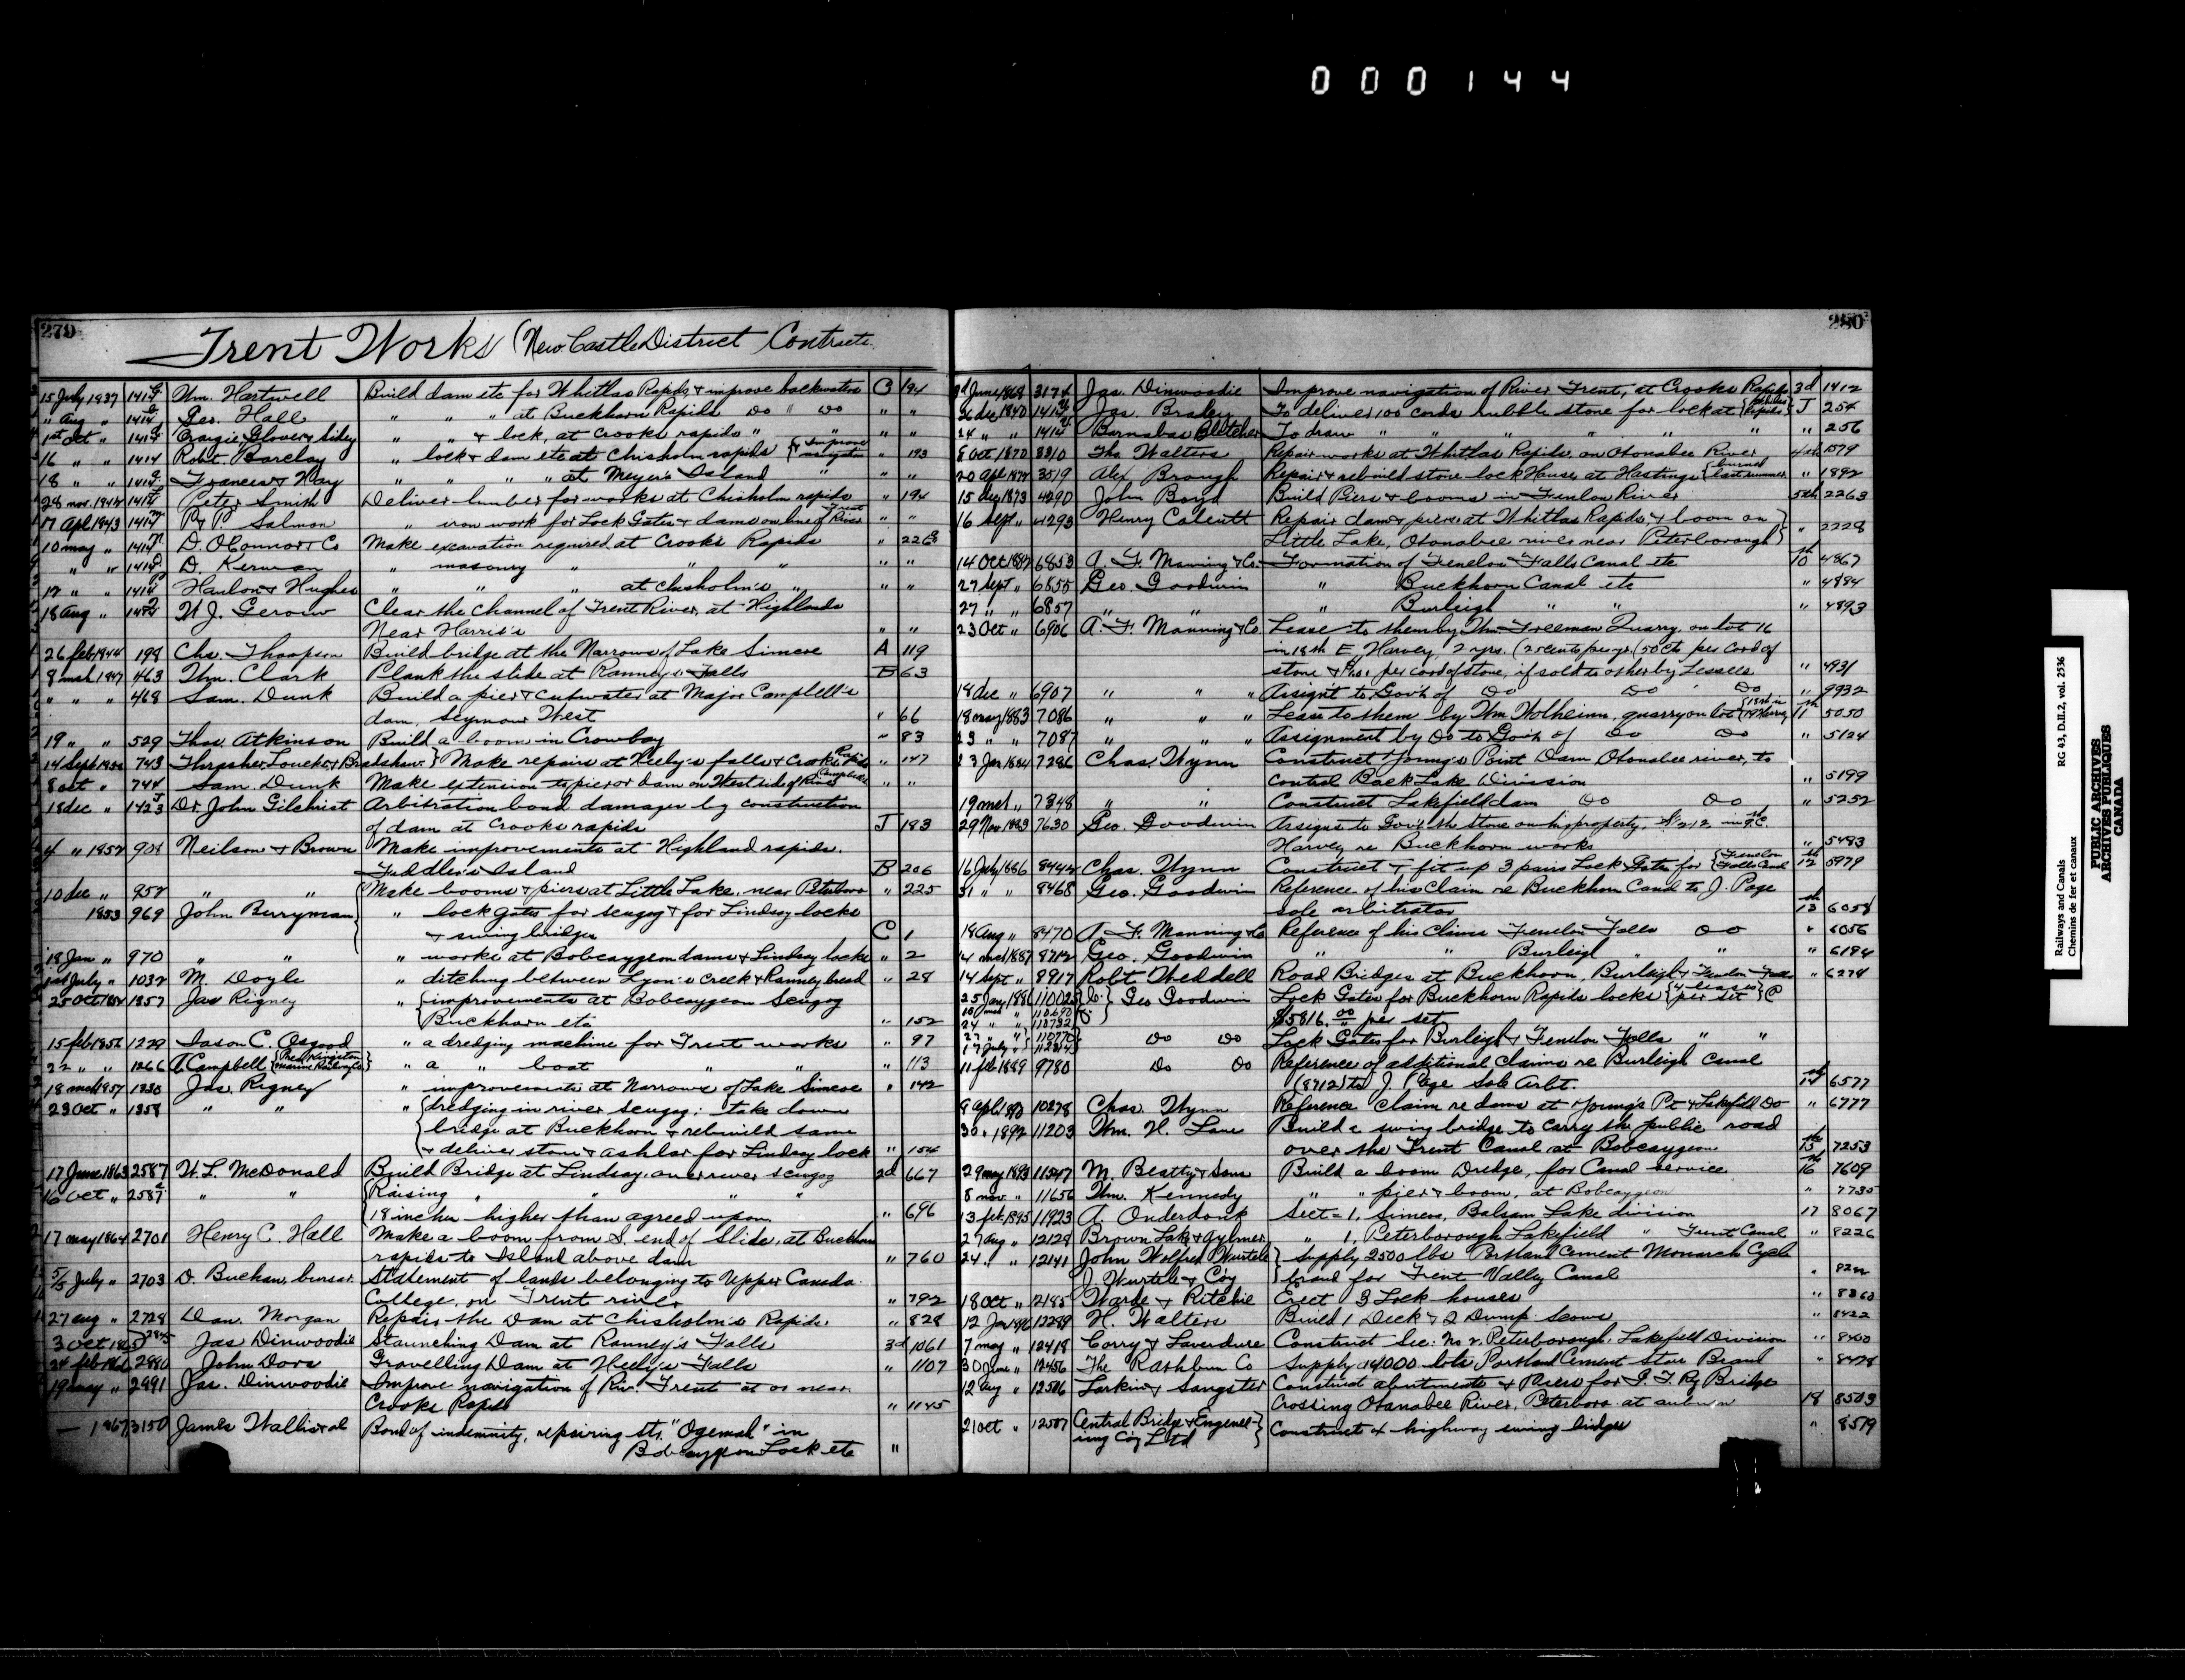 000144
279
Trent Works (New Castle District Contracts
15 July 1837 1414 Wm. Hartwell Build dam etc for Whitlas Rapids & improve backwaters C 194
" Aug " 1414 Geo. Hall " " " at Buckhorn Rapids Do " Do " "
1st Oct " 1414 Craigie, Glover & Sidey " " & lock, at Crooks rapids " " "
16 " " 1414 Robt. Barclay " lock & dam etc at Chisholm rapids { & Improve navigation " 193
18 " " 1414 Francis & Hay " " " " at Meyer's Island " " "
28 nov. 1842 1414 Peter Smith Deliver lumber for works at Chisholm rapids " 194
17 Apl 1843 1414 P & P Salmon " iron work for Lock Gates & dams on line of Trent River " "
10 may " 1414 D. O'Connor & Co Make excavation required at Crook's Rapids " 226
" " 1414 D. Kerwan " masonry " " " " "
12 " " 1414 Hanlon & Hughes " " " at Chisholm's " " "
18 Aug " W. J. Gerow Clear the channel of Trent River, at Highlands
Near Harris's " "
26 feb 1844 198 Chs. Thompson Build bridge at the Narrows of Lake Simcoe A 119
8 mch 1847 463 Thm. Clark Plank the slide at Ranney's Falls B 63
" " " 468 Sam. Dunk Build a pier & cutwater at Major Campbell's
dam, Seymour West " 66
19 " " 529 Thos. Atkinson Build a boom in Crowbay " 83
14 Sept 743 Thrasher, Loucks & Bradshaw } Make repairs at Heely's falls & Crooks Rapids " 147
8 oct " 744 Sam. Dunk Make extension to pier or dam on West side of River Campbells " "
18 dec " 1423 Dr John Gilchrist Arbitration bond damages by construction
of dam at Crooks rapids J 183
4 " 1852 901 Neilson & Brown Make improvements at Highland rapids.
Fiddler's Island B 206
10 dec " 952 " " Make booms & piers at Little Lake, near Peterboro " 225
1853 969 John Berryman " lock gates for Scugog & for Lindsay locks
& swing bridges C 1
18 Jan " 970 " " " works at Bobcaygeon dams & Lindsay locks " 2
1st July " 1032 M. Doyle " ditching between Lyon's Creek & Ranney head " 28
25 Oct 1357 Jas Rigney " { improvements at Bobcaygeon Scugog
Buckhorn etc " 152
15 feb 1856 1229 Jason C. Osgood " a dredging machine for Trent works " 97
22 " " 1266 A. Campbell { Pres Kingston Marine Railway Co } " a " boat " " " 113
18 mch 1857 1330 Jas. Rigney " improvements at Narrows of Lake Simcoe " 142
23 Oct " 1358 " " " { dredging in river Scugog; take down
bridge at Buckhorn & rebuild same
& deliver stone & ashlar for Lindsay lock " 154
17 June 1863 2587 W. L. McDonald Build Bridge at Lindsay, over river Scugog 2d 667
16 Oct " 2587 " " { Raising " " " "
18 inches higher than agreed upon " 696
17 may 1864 2701 Henry C. Hall Make a boom from S. end of Slide, at Buckhorn
rapids to Island above dam " 760
5/5 July " 2703 D. Buchan, bursar Statement of lands belonging to Upper Canada
College, on Trent river " 792
27 aug " 2728 Dan. Morgan Repair the Dam at Chisholm's Rapids. " 828
3 oct 1865 2845 Jas Dinwoodie Staunching Dam at Ranney's Falls 3d 1061
24 feb 2980 John Dora Gravelling Dam at Heely's Falls " 1107
19 may " 2991 Jas. Dinwoodie Improve navigation of Riv. Trent at or near
Crooks Rapids " 1145
— 1867 3150 James Wallis et al Bond of indemnity, repairing Str. "Ogemah" in
Bobcaygeon Lock etc "
280
June 1868 3174 Jas. Dinwoodie Improve navigation of River Trent, at Crooks Rapids 3d 1412
26 dec 1840 1414 Jas. Braley To deliver 100 cords rubble stone for lock at { Rapids J 254
24 " " 1414 Barnabas Bletcher To draw " " " " " " 256
8 Oct 1870 3310 Thos Walters Repair works at Whitlas Rapids, on Otonabee River 4th 1579
20 Apl 3519 Alex Brough Repair & rebuild stone lock House, at Hastings { burned last summer " 1892
15 1873 4290 John Boyd Build Piers & booms in Fenelon River 5th 2263
16 Sept " 4293 Henry Calcutt Repair dam & piers at Whitlas Rapids, & boom on
Little Lake, Otonabee river near Peterborough } " 2228
14 Oct 1882 6853 A. F. Manning & Co. Formation of Fenelon Falls Canal etc 10th 4867
27 Sept " 6855 Geo. Goodwin " Buckhorn Canal etc " 4884
27 " " 6857 " " " Burleigh " " " 4893
23 Oct " 6906 A. F. Manning & Co. Lease to them by Wm. Freeman Quarry, on lot 16
in 18th E, Harvey, 2 yrs. (25 cents per yr. (50 cts per cord of
stone & per cord of stone, if sold to other by Lessees " 4931
18 dec " 6907 " " " Assign't to Gov't of Do Do Do " 9932
18 may 1883 7086 " " " Lease to them by Wm Wolheim, quarry on lot { 18th in 19 Harvey 11th 5050
23 " " 7087 " " " Assignment by Do to Gov't of Do Do " 5124
23 Jan 1884 7286 Chas. Wynn Construct Young's Point Dam, Otonabee river, to
control Back Lake Division " 5199
19 mch " 7348 " " Construct Lakefield dam Do Do " 5252
29 Nov 1883 7630 Geo. Goodwin Assigns to Gov't the stone on his property,
Harvey re Buckhorn works " 5483
16 July 1886 8444 Chas. Wynn Construct & fit up 3 pairs Lock Gates for { Fenelon Falls Canal 12th 5979
31 " " 8468 Geo. Goodwin Reference of his Claim re Buckhorn Canal to J. Page
sole arbitrator 13th 6058
18 Aug " 8470 A. F. Manning & Co Reference of his Claims Fenelon Falls Do " 6056
14 mch 1887 8712 Geo. Goodwin " " Burleigh " " " 6194
14 Sept " 8917 Robt Weddell Road Bridges at Buckhorn, Burleigh & Fenelon Falls " 6278
25 Jany 110025 Geo Goodwin Lock Gates for Buckhorn Rapids locks { per set } C
110690
24 " " 110732 $5816.00 per set
27 " " 110770 Do Do Lock Gates for Burleigh & Fenelon Falls " "
17 July "
11 feb 1889 9780 Do Do Reference of additional claims re Burleigh Canal
(8712) to J. Page Sole Arbt. 14th 6577
9 Apl 1890 10278 Chas. Wynn Reference Claim re dams at Young's Pt & Lakefield Do " 6777
30 " 1892 11203 Wm. H. Lane Build a swing bridge to carry the public road
over the Trent Canal at Bobcaygeon 15th 7253
29 may 1893 11547 M. Beatty & Sons Build a boom Dredge, for Canal service 16th 7609
8 nov. " 11656 Wm. Kennedy " " pier & boom, at Bobcaygeon " 7735
13 feb. 1895 11923 A. Onderdonk Sect = 1, Simcoe, Balsam Lake division 17 8067
27 aug " 12128 Brown Lake & Aylmer " 1, Peterborough Lakefield " Trent Canal " 8226
24 " " 12141 John Wolfred Wurtele } Supply 2500 lbs Portland Cement Monarch Cycle
J. Wurtele & Coy } brand for Trent Valley Canal "
18 Oct " 12185 Warde & Ritchie Erect 3 Lock houses " 8360
12 Jan 1896 12289 H. Walters Build 1 Deck & 2 Dump Scows " 8422
7 may " 12418 Corry & Laverdure Construct Sec: No 2, Peterborough, Lakefield Division " 8460
30 June " 12456 The Rathbun Co Supply 14000 bbls Portland Cement Star Brand " 8478
12 Aug " 12506 Larkin & Sangster Construct abutments & Piers for G. T. Ry Bridge
Crossing Otonabee River, Peterboro at auburn 18 8503
21 oct " 12587 Central Bridge & Engineer-
ing Coy Ltd } Construct 4 highway swing bridges " 8519
Railways and Canals RG 43, D.II.2, vol. 2536
Chemins de fer et canaux
PUBLIC ARCHIVES
ARCHIVES PUBLIQUES
CANADA